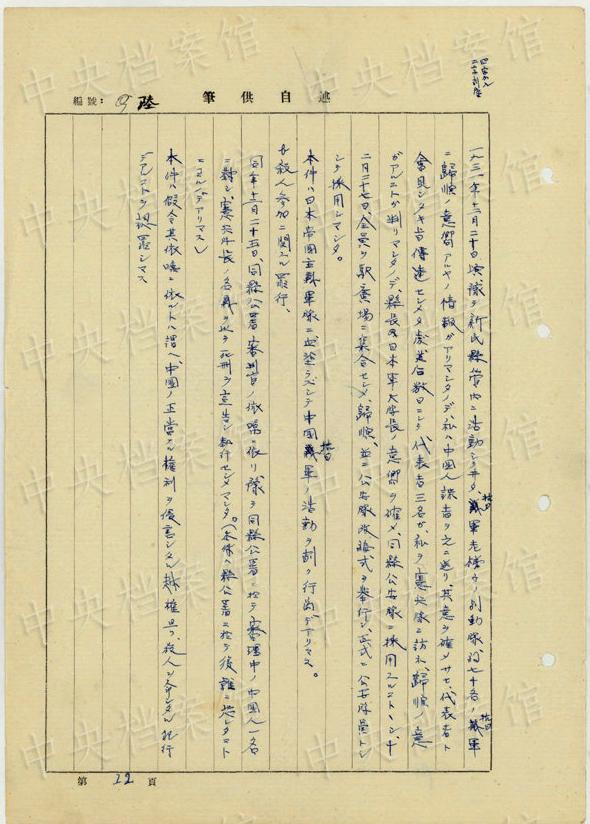 述自供筆
編號:
陸
一九三一年十二月二十日頃、隊ヲ新民縣管内ニ活動シ
抗日
義軍老梯ウノ別動隊約七十名ノ
抗日
義軍
ニ歸順ノ意嚮アルヤノ情報ガアリマシタノデ、私ハ中國人諜者ヲ之ニ送リ、其意ヲ確メサセ、代表者ト
會見シタキ旨傳達セシメタ處、數日ニシテ代表者三名ガ、私ヲ憲兵隊ニ訪ネ、歸順ノ意
ガアルコトガ判リマシタノデ、縣長及日本軍大隊長ノ意嚮ヲ確メ、同縣公安隊ニ採用スルコトトシ、十
二月二十七日、全員ヲ驛廣場ニ集合セシメ、歸順、並ニ公安隊改編式ヲ擧行シ、正式ニ公安隊員トシ
テ採用シマシタ。
本件ハ日本帝國主義軍隊ニ
中國
抗日
義軍ノ活動ヲ剝グ行為デアリマス。
殺人參加ニ關スル罪行、
同年十二月二十五日、同縣公署審判官ノ
ニ依リ隊ヲ同縣公署ニ於テ審理中ノ中國人一名
ニ對シ、憲兵分隊長ノ名義ヲ以テ死刑ヲ宣告シ執行セシメマシタ。(本隊ハ縣公署ニ於テ後難ニ恐レタコト
ニヨルノデアリマス)
本件ハ假令其
ニ依ルトハ謂ヘ、中國ノ正當ナル權利ヲ侵害シタル越權且ツ、殺人ヲ命ジタル犯行
デアルコトヲ認罪シマス
第 22 頁
中央档案馆